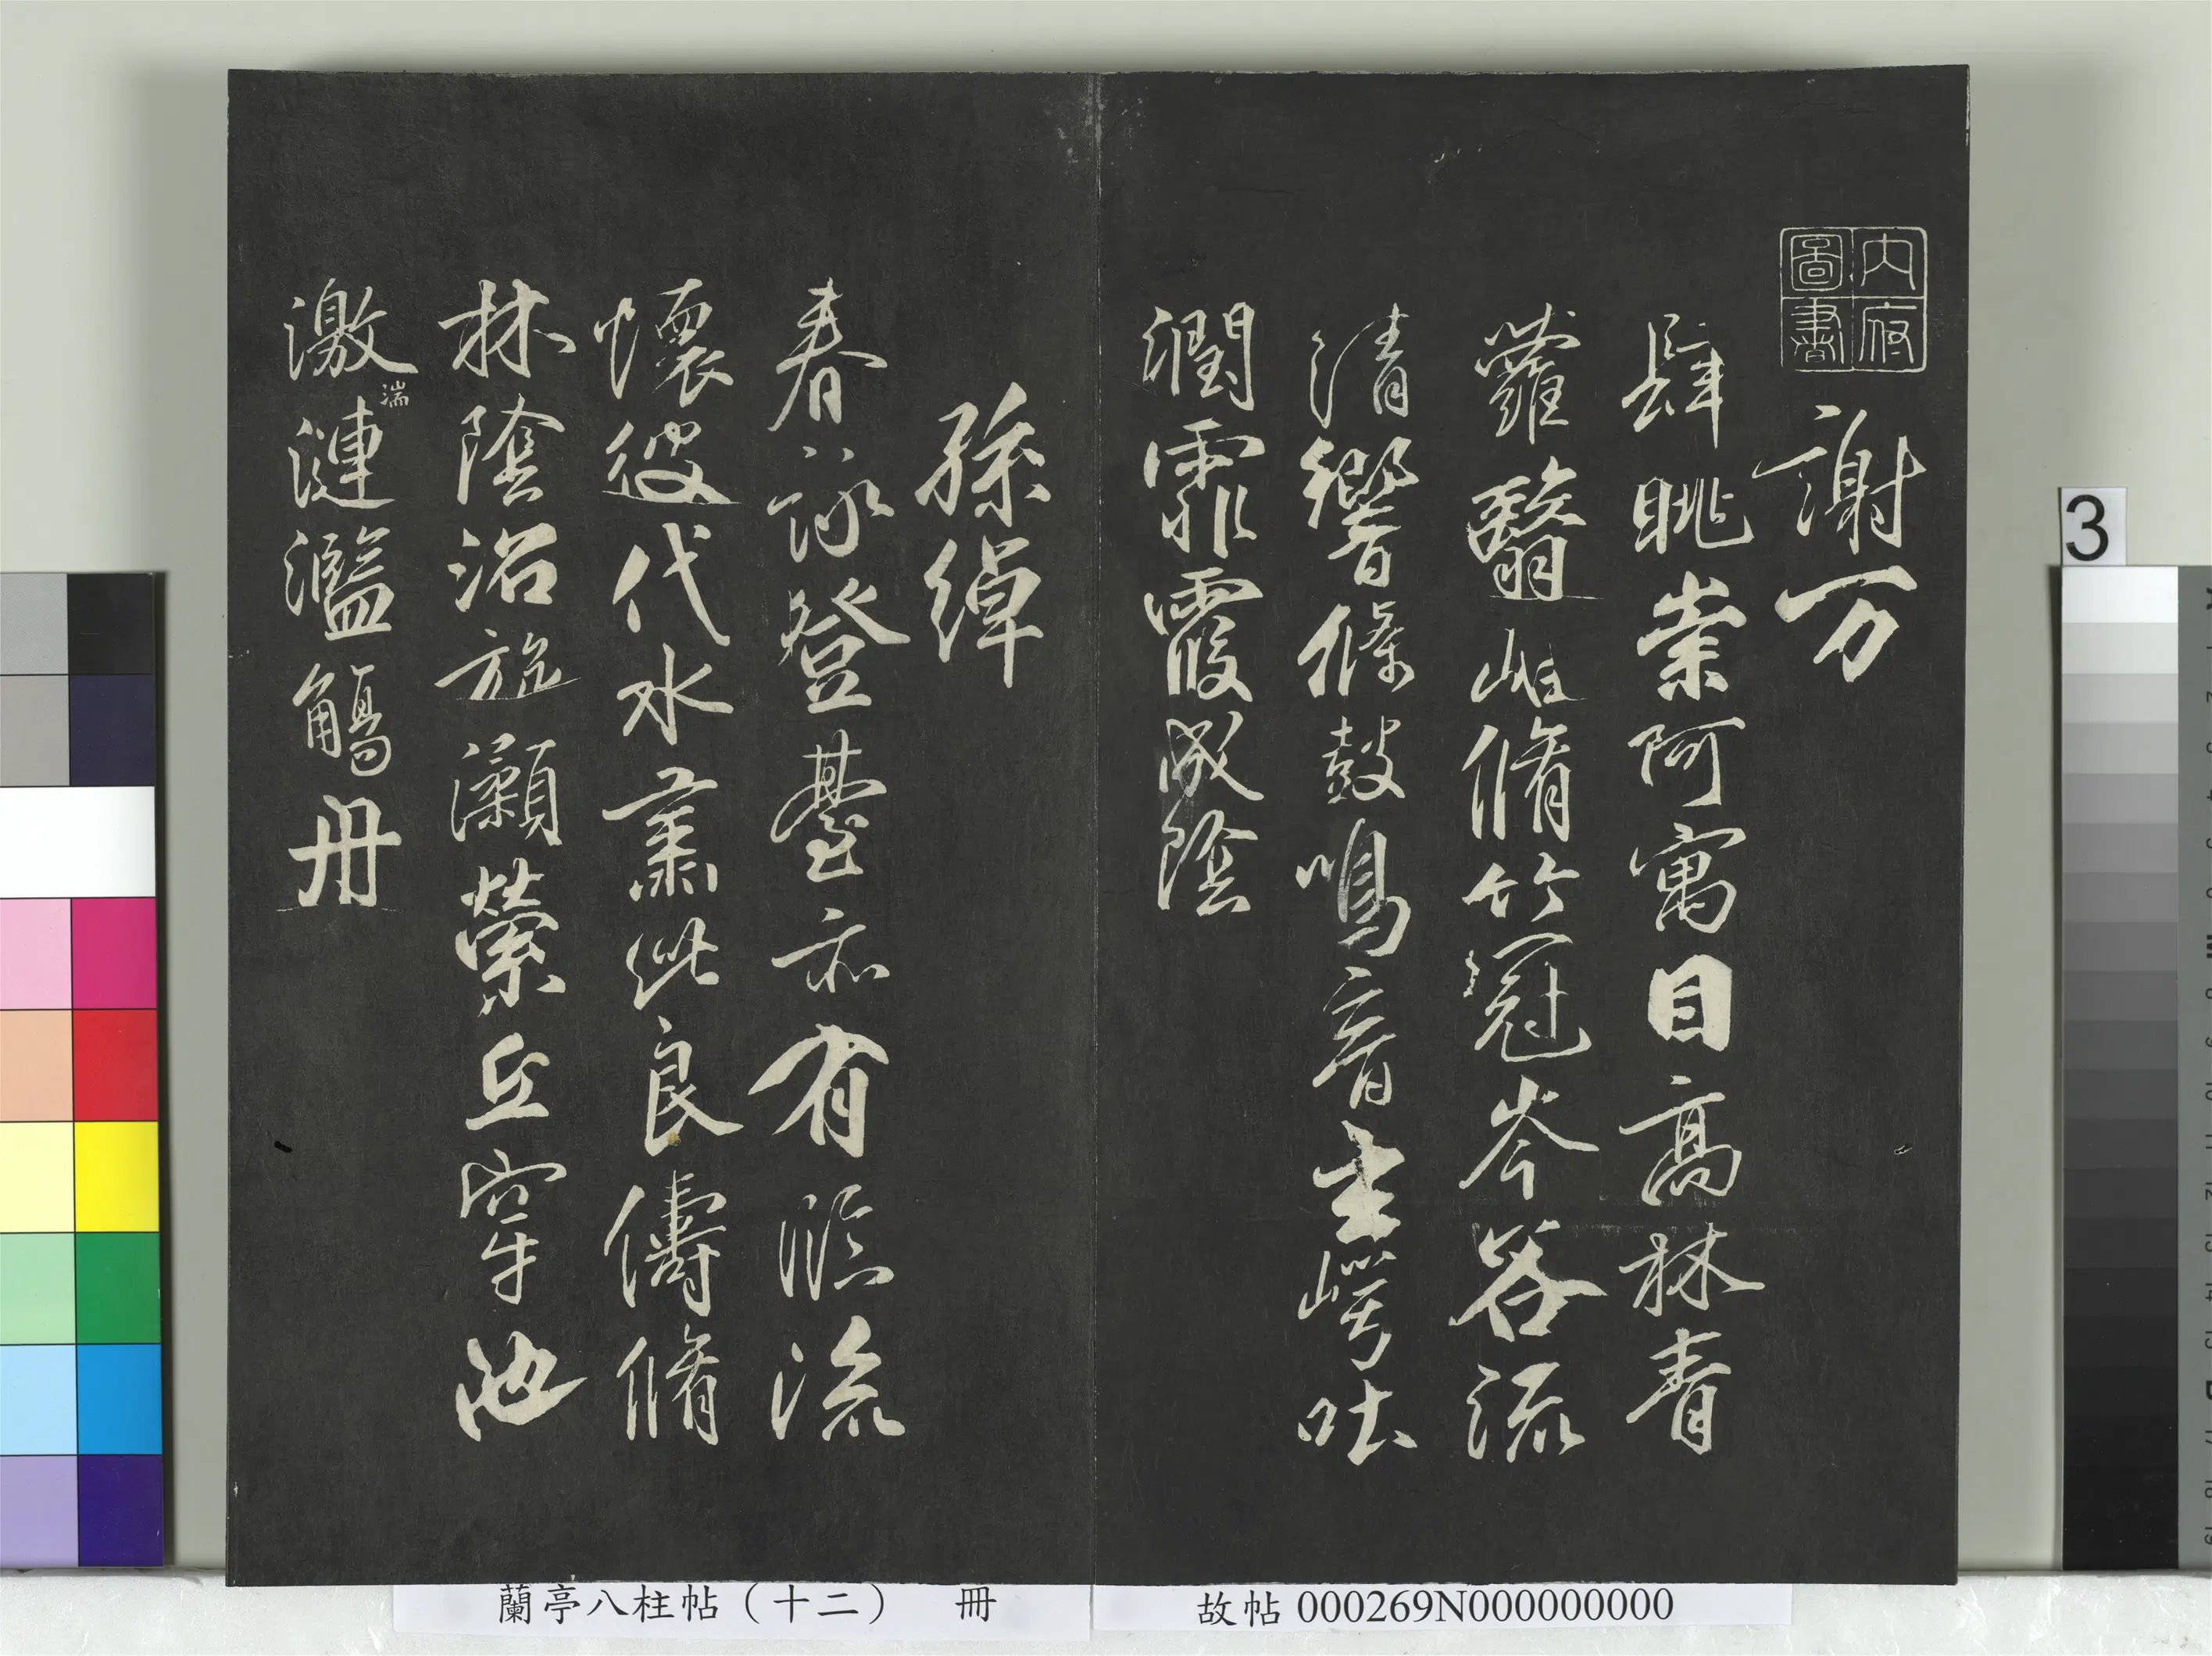 內府圖書
謝万
肆眺崇阿寓目高林青
蘿翳岫脩竹冠岑谷流
清響條鼓鳴音玄崿吐
潤霏霧成陰
孫綽
春詠登臺亦有臨流
懷彼伐木肅此良儔脩
林陰沼旋瀨縈丘穿池
激湍
漣濫觴冊
蘭亭八柱帖（十二） 冊
故帖 000269N000000000
3